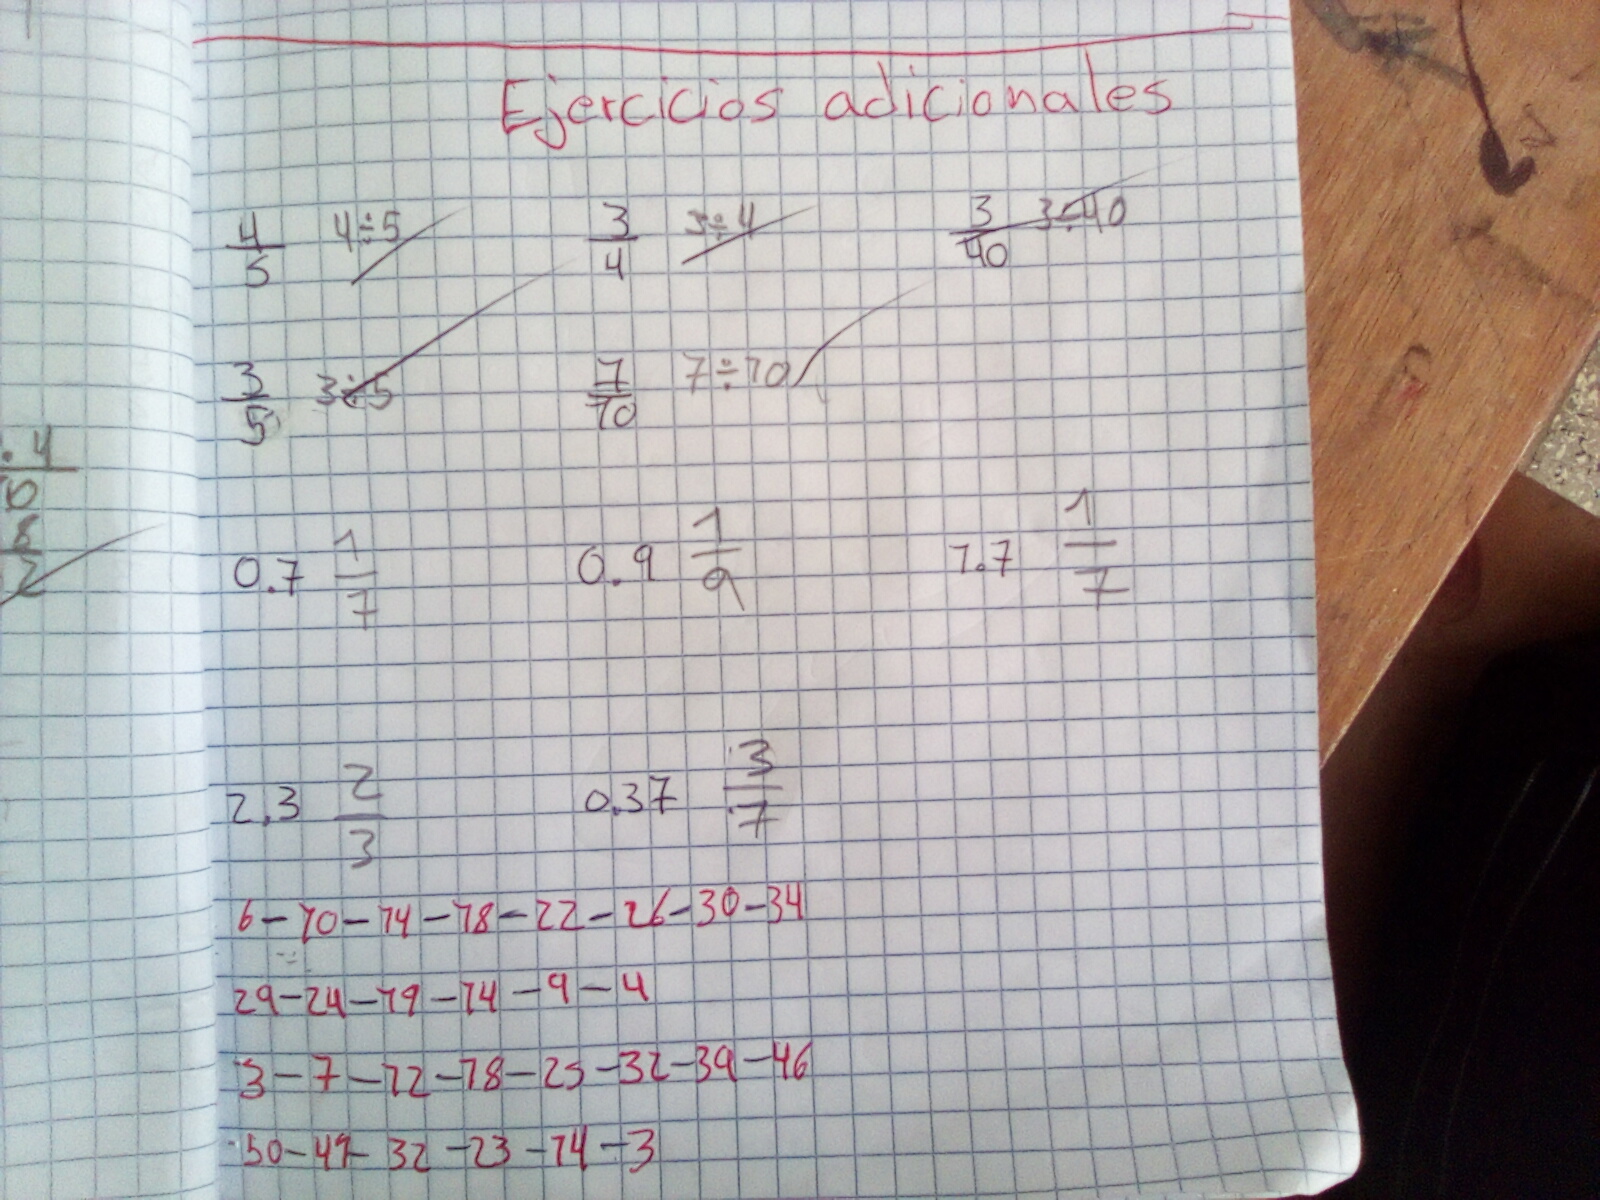 Ejercicios adicionales
4/5 4÷5 3/4 3÷4 3/40 3÷40
3/5 3÷5 7/10 7÷10
0.7 1/7 0.9 1/9 1.7 1/7
2.3 2/3 0.37 3/7
6-10-14-18-22-26-30-34
29-24-19-14-9-4
3-7-12-18-25-32-39-46
50-41-32-23-14-3